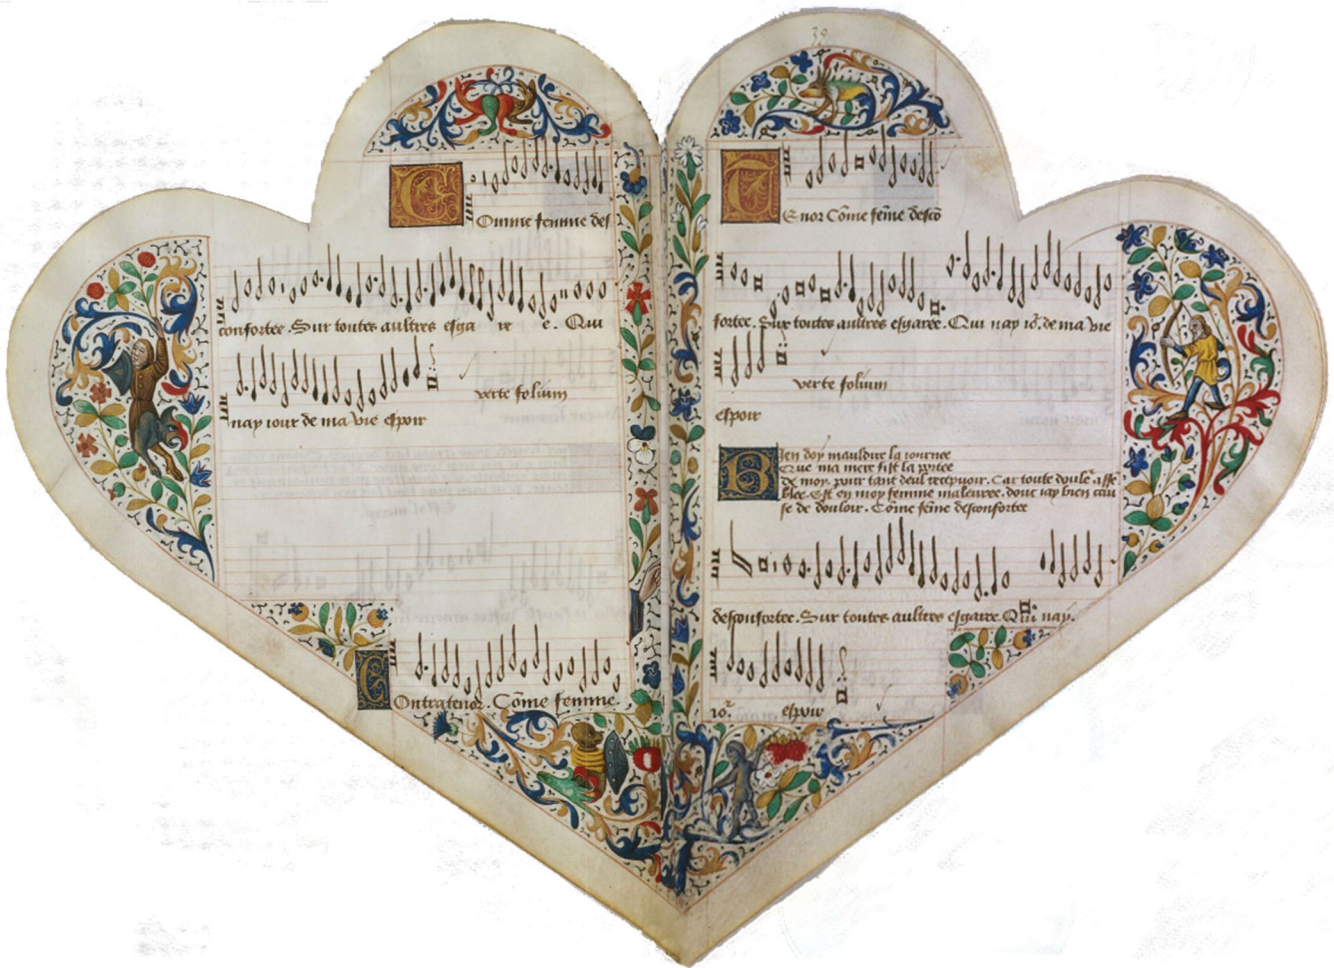 Comme femme des
confortee. Sur toutes aultres esga re e. Qui
verte folium
nay iour de ma vie espoir
Contratenor. Cõme femme.
39
Tenor Cõme fẽme descõ
fortee. Sur toutes aultres esgaree. Qui nay io². de ma vie
verte folium
espoir
Bien doy mauldire la iournee
Que ma mere fist la portee
de moy. pour tant deul recepuoir. Car toute doulẽ² asse
blee. Est en moy femme maleuree. donc iay bien cau
se de douloir. Cõme fẽme desconfortee
desconfortee. Sur toutes aultres esgaree. Qui nay.
io². espoir